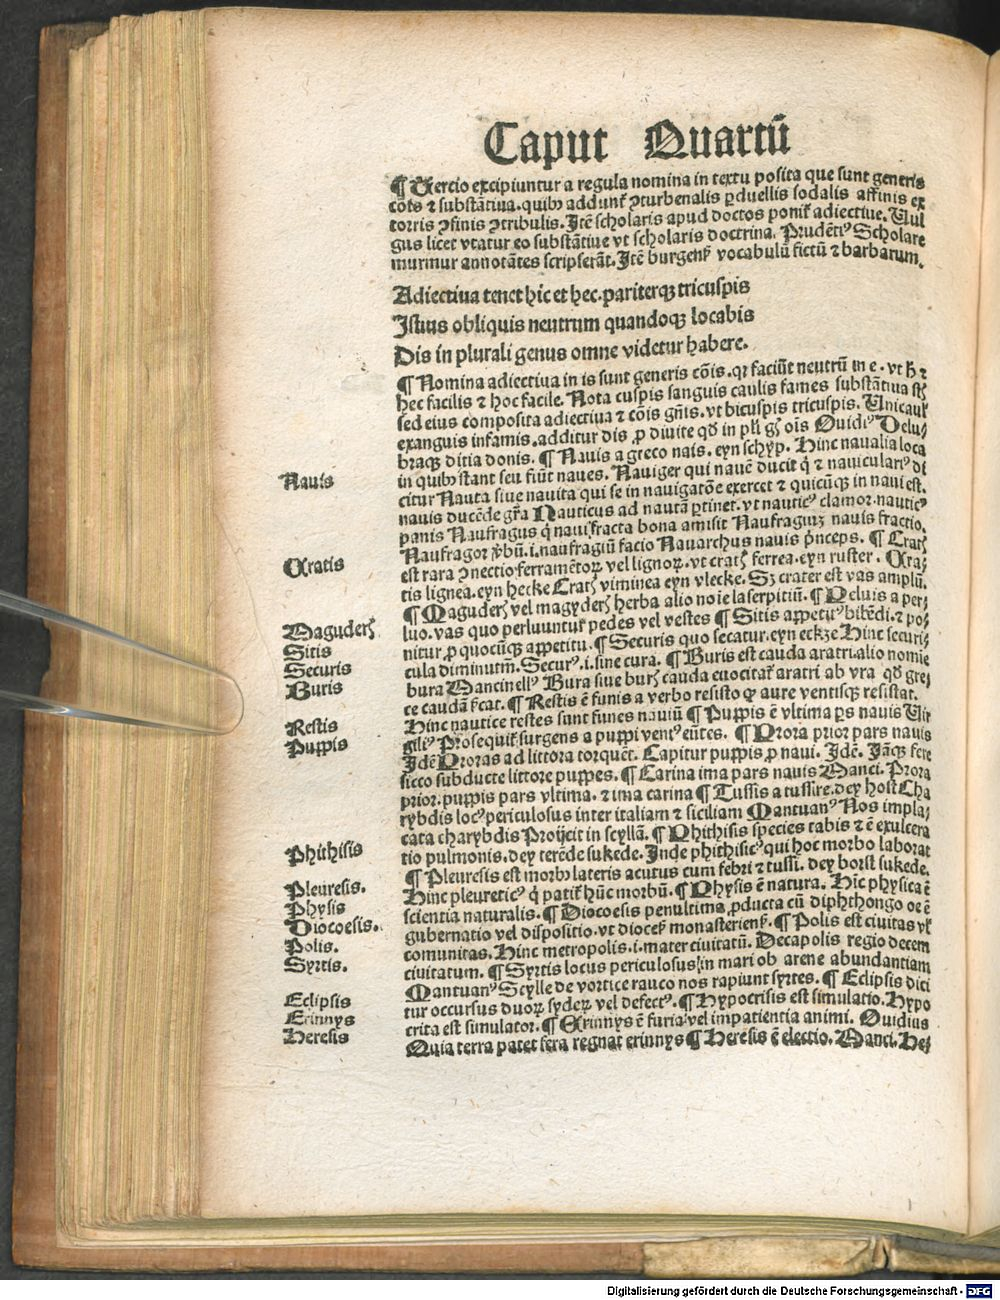 Caput Quartū
¶ Tercio excipiuntur a regula nomina in textu posita que sunt generis
cōis ⁊ substātiua. quibꝰ addunt̃ ꝯturbenalis ꝑduellis sodalis affinis ex
torris ꝯfinis ꝯtribulis. Itē scholaris apud doctos ponit̃ adiectiue. Uul
gus licet vtatur eo substātiue vt scholaris doctrina. Prudētiꝰ Scholare
murmur annotātes scripserāt. Itē burgens̃ vocabulū fictū ⁊ barbarum.
Adiectiua tenet hic et hec. pariterqꝫ tricuspis
Istius obliquis neutrum quandoqꝫ locabis
Dis in plurali genus omne videtur habere.
¶ Nomina adiectiua in is sunt generis cōis. qꝛ faciūt neutrū in e. vt h̃ ⁊
hec facilis ⁊ hoc facile. Nota cuspis sanguis caulis fames substātiua st̃
sed eius composita adiectiua ⁊ cōis gn̄is. vt bicuspis tricuspis. Unicaul̃
exanguis infamis. additur dis ꝓ diuite qđ in pl̃i gñ oīs Ouidiꝰ Delu⸗
braqꝫ ditia donis. ¶ Nauis a greco nais. eyn schyp. Hinc naualia loca
Nauis
in quibꝰ stant seu fiūt naues. Nauiger qui nauē ducit q̇ ⁊ nauiculariꝰ di
citur Nauta siue nauita qui se in nauigatōe exercet ⁊ quicūqꝫ in naui est.
nauis ducēde gr̄a Nauticus ad nautā ꝑtinet. vt nauticꝰ clamor. nauticꝰ
panis Naufragus q̇ naui fracta bona amisit Naufragiuꝫ nauis fractio.
Naufragor v̄bū. i. naufragiū facio Nauarchus nauis p̄nceps. ¶ Crat̃
Cratis
est rara ꝯnectio ferramētoꝝ vel lignoꝝ. vt crat̃ ferrea. eyn ruster. Cra⸗
tis lignea. eyn hecke Crat̃ viminea eyn vlecke. Sꝫ crater est vas amplū.
¶ Maguder̃ vel magyder̃ herba alio noīe laserpitiū. ¶ Peluis a per⸗
Maguder̃
luo. vas quo perluuntur pedes vel vestes ¶ Sitis appetitꝰ bibēdi. ⁊ po⸗
Sitis
nitur ꝓ quocūqꝫ appetitu. ¶ Securis quo secatur. eyn eckze Hinc securi⸗
Securis
cula diminutm̄. Securꝰ. i. sine cura. ¶ Buris est cauda aratri. alio nomīe
Buris
bura Mancinellꝰ Bura siue bur̃ cauda euocitat̃ aratri ab vra qđ gre⸗
ce caudam s̃cat. ¶ Restis ē funis a verbo resisto qꝫ aure ventisqꝫ resistat.
Restis
Hinc nautice restes sunt funes nauiū ¶ Puppis ē vltima ꝑs nauis Uir
Puppis
giliꝰ Prosequit̃ surgens a puppi ventꝰ eūtes. ¶ Prora prior pars nauis
Idē Proras ad littora torquēt. Capitur puppis ꝓ naui. Idē. Iāqꝫ fere
sicco subducte littore puppes. ¶ Carina ima pars nauis Manci. Prora
prior. puppis pars vltima. ⁊ ima carina ¶ Tussis a tussire. dey host Cha
rybdis locꝰ periculosus inter italiam ⁊ siciliam Mantuanꝰ Nos impla⸗
cata charybdis Proijcit in scyllā. ¶ Phthisis species tabis ⁊ ē exulcera
Phthisis
tio pulmonis. dey terēde sukede. Inde phthisicꝰ qui hoc morbo laborat
¶ Pleuresis est morbꝰ lateris acutus cum febri ⁊ tussi. dey borst sukede.
Pleuresis.
Hinc pleureticꝰ q̇ patit̃ hūc morbū. ¶ Physis ē natura. Hic physica ē
Physis
scientia naturalis. ¶ Diocoesis penultima ꝓducta cū diphthongo oe ē
Diocoesis.
gubernatio vel dispositio. vt dioces̃ monasteriens̃. ¶ Polis est civitas vł
Polis.
comunitas. Hinc metropolis. i. mater ciuitatū. Decapolis regio decem
Syrtis.
ciuitatum. ¶ Syrtis locus periculosus in mari ob arene abundantiam
Mantuanꝰ Scylle de vortice rauco nos rapiunt syrtes. ¶ Eclipsis dici
Eclipsis
tur occursus duoꝝ syderꝝ vel defectꝰ. ¶ Hypocrisis est simulatio. Hypo
Erinnys
crita est simulator. ¶ Erinnys ē furia vel impatientia animi. Ouidius
Heresis
Quia terra patet fera regnat erinnys ¶ Heresis ē electio. Manci. He⸗
Digitalisierung gefördert durch die Deutsche Forschungsgemeinschaft - DFG